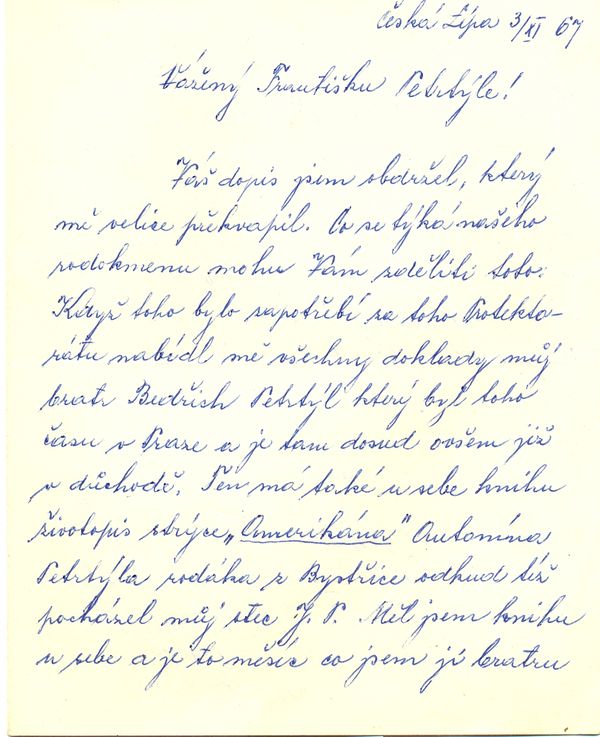 Česká Lípa 3/XI 67
Vážený Františku Petrtýle!
Váš dopis jsem obdržel, který
mě velice překvapil. Co se týká našeho
rodokmenu mohu Vám sděliti toto:
Když toho bylo zapotřebí za toho Protekto-
rátu nabídl mě všechny doklady můj
bratr Bedřich Petrtýl který byl toho
času v Praze a je tam dosud ovšem již
v důchodě. Ten má také u sebe knihu
životopis strýce „Amerikána" Antonína
Petrtýla rodáka z Bystřice odkud též
pocházel můj otec J. P. Měl jsem knihu
u sebe a je to měsíc co jsem jí bratru